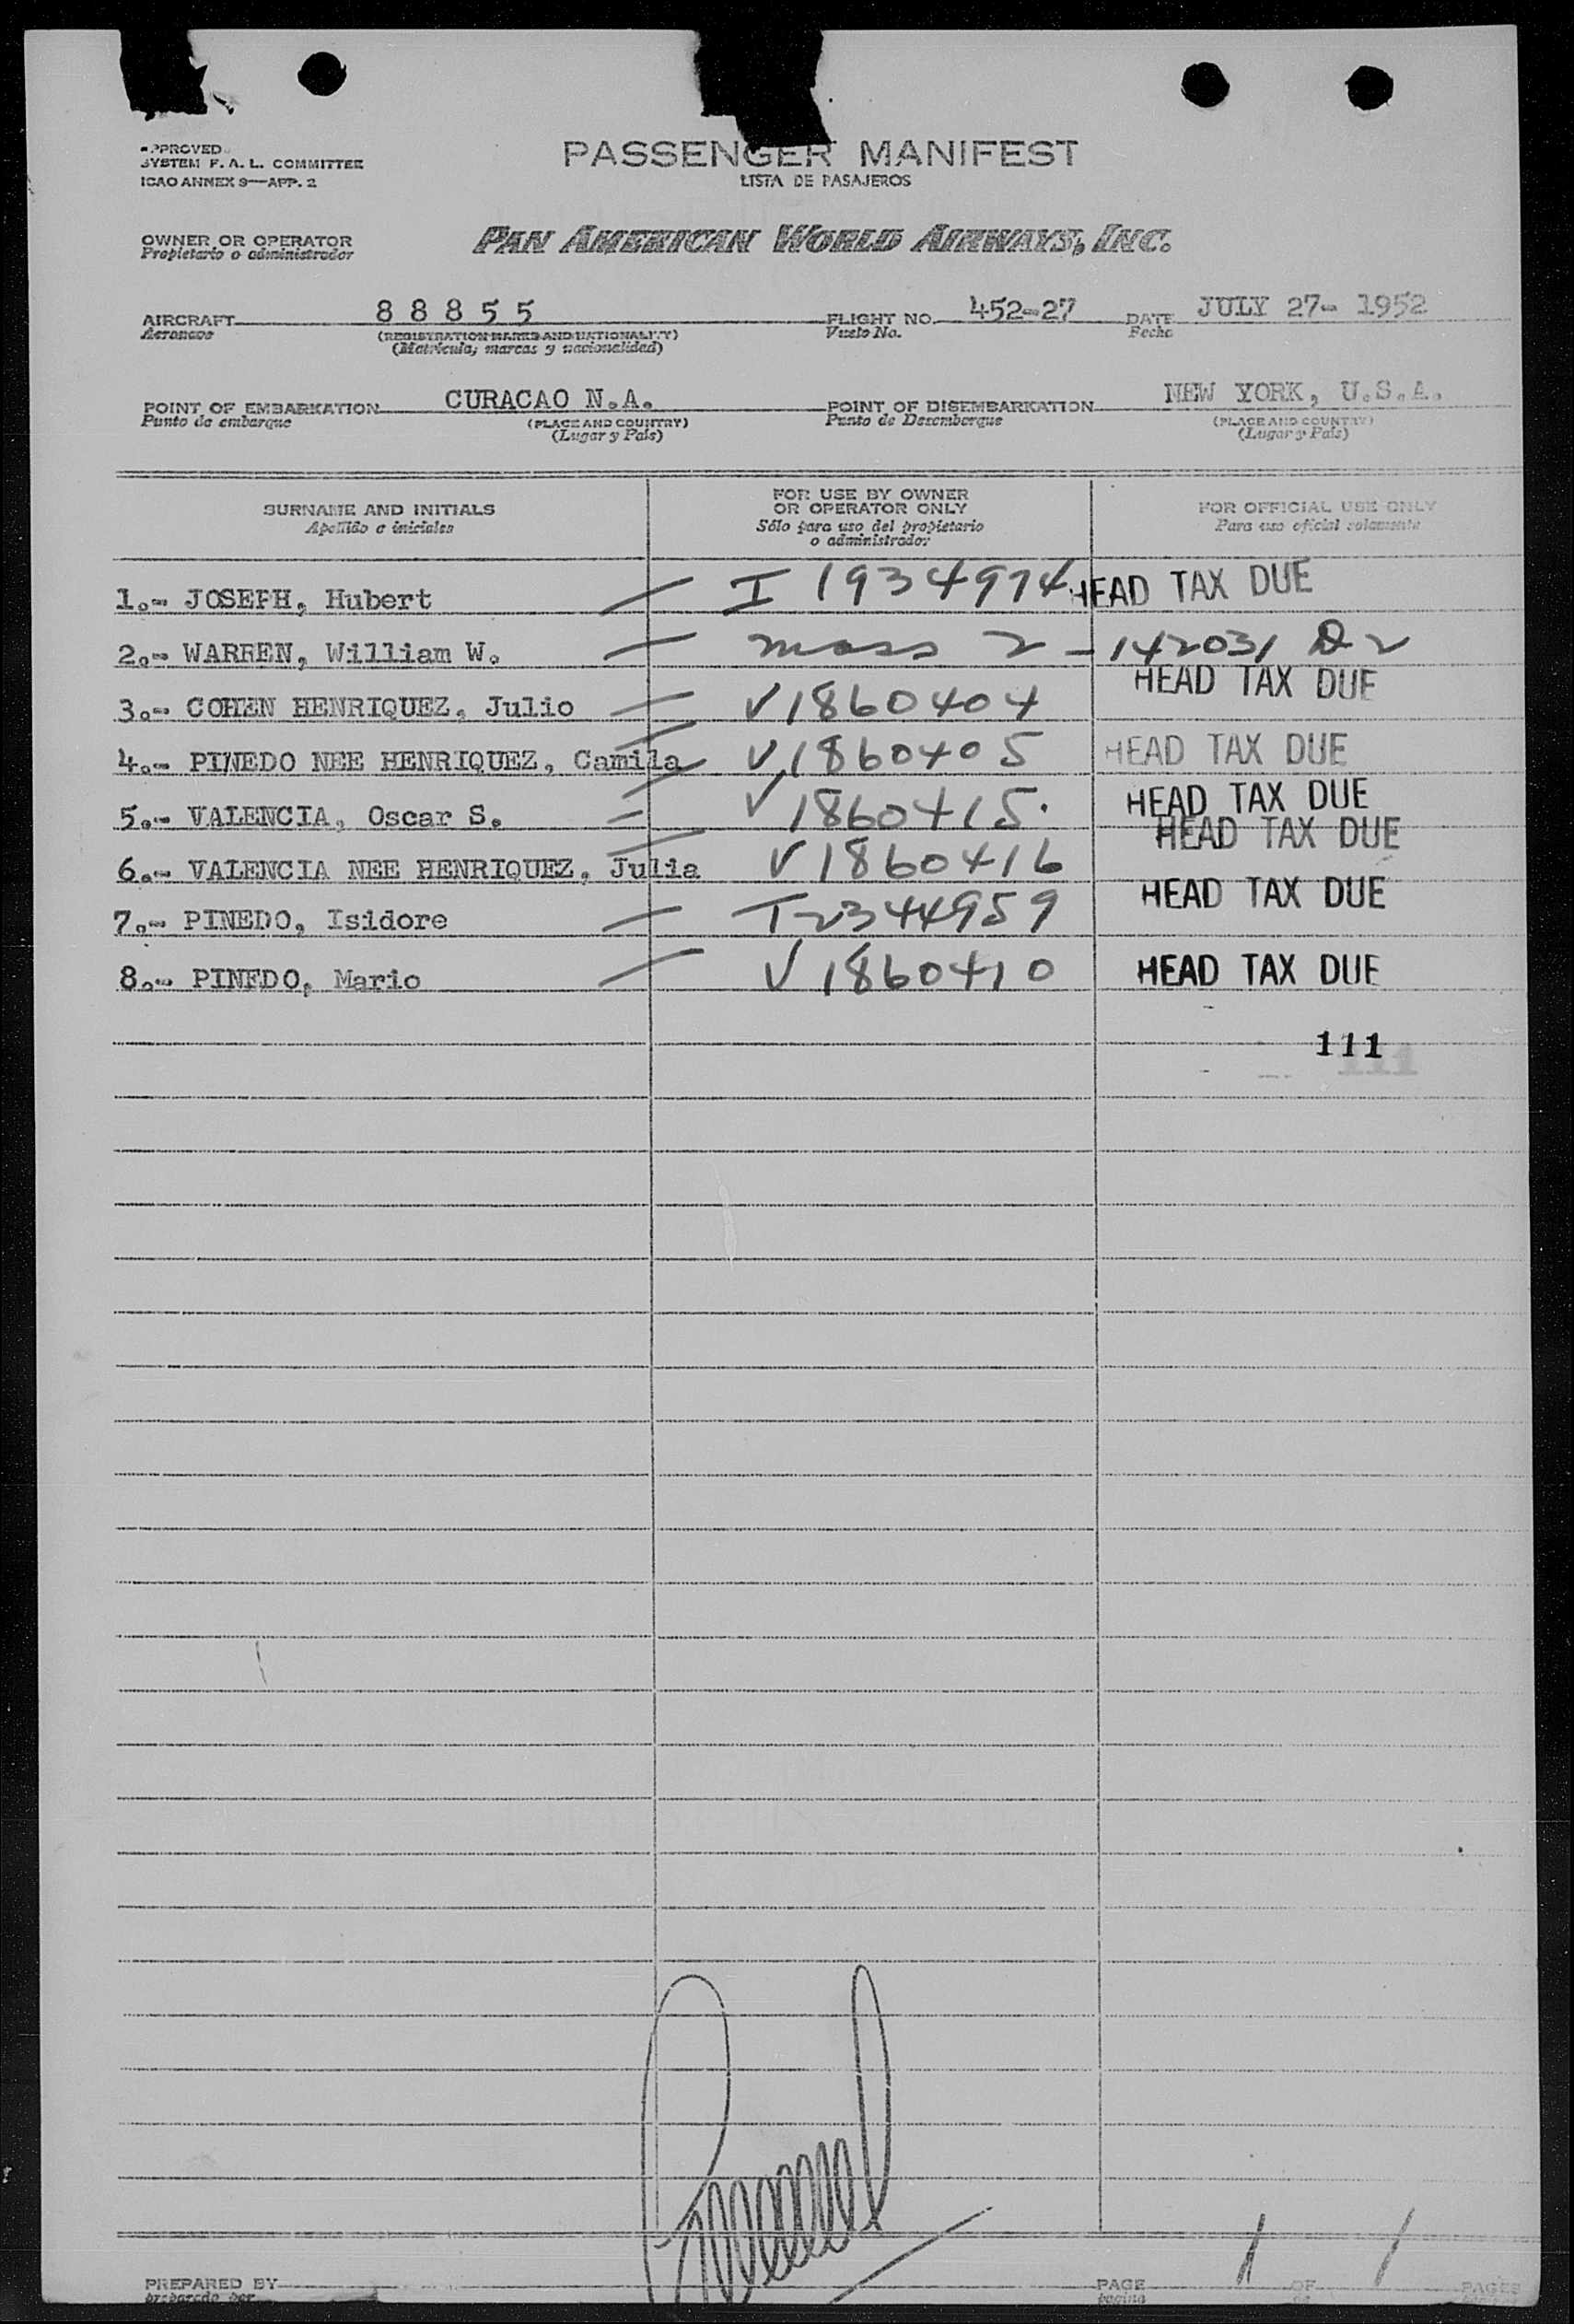 APPROVED
SYSTEM F. A. L. COMMITTEE
ICAO ANNEX 9—APP. 2
PASSENGER MANIFEST
LISTA DE PASAJEROS
OWNER OR OPERATOR
Propietario o administrador
PAN AMERICAN WORLD AIRWAYS, INC.
AIRCRAFT 8 8 8 5 5 FLIGHT NO. 452-27 DATE JULY 27- 1952
Aeronave (REGISTRATION MARKS AND NATIONALITY) Vuelo No. Fecha
(Matrícula, marcas y nacionalidad)
POINT OF EMBARKATION CURACAO N.A. POINT OF DISEMBARKATION NEW YORK, U.S.A.
Punto de embarque (PLACE AND COUNTRY) Punto de Desembarque (PLACE AND COUNTRY)
(Lugar y País) (Lugar y País)
SURNAME AND INITIALS FOR USE BY OWNER OR OPERATOR ONLY FOR OFFICIAL USE ONLY
Apellido e iniciales Sólo para uso del propietario o administrador Para uso oficial solamente
1.- JOSEPH, Hubert — I 1934974 HEAD TAX DUE
2.- WARREN, William W. — mass 2 - 142031 D2
HEAD TAX DUE
3.- COHEN HENRIQUEZ, Julio — V1860404
4.- PINEDO NEE HENRIQUEZ, Camila V1860405 HEAD TAX DUE
5.- VALENCIA, Oscar S. V1860415. HEAD TAX DUE
HEAD TAX DUE
6.- VALENCIA NEE HENRIQUEZ, Julia V1860416
7.- PINEDO, Isidore — T2344959 HEAD TAX DUE
8.- PINEDO, Mario — V1860410 HEAD TAX DUE
111
111
PREPARED BY PAGE 1 OF 1 PAGES
preparado por página de